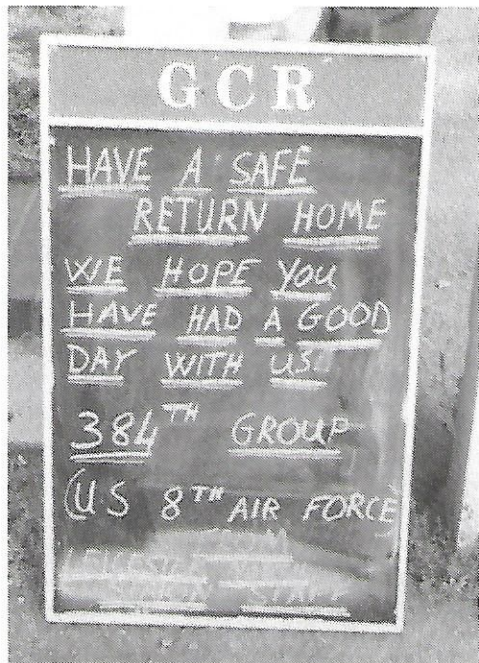 GCR
HAVE A SAFE
RETURN HOME
WE HOPE YOU
HAVE HAD A GOOD
DAY WITH US!!
384TH GROUP
(US 8TH AIR FORCE)
FROM
LEICESTER
STAFF